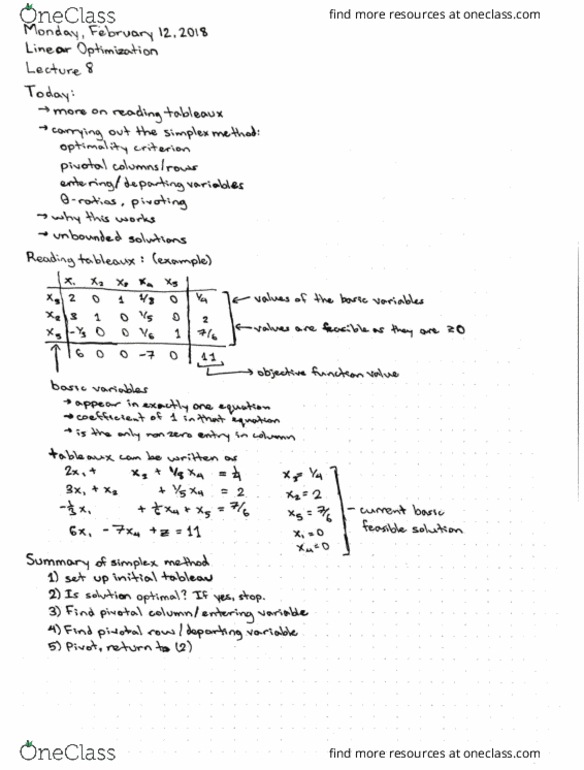 OneClass
find more resources at oneclass.com
Monday, February 12, 2018
Linear Optimization
Lecture 8
Today:
→ more on reading tableaux
→ carrying out the simplex method:
optimality criterion
pivotal columns/rows
entering/departing variables
θ-ratios, pivoting
→ why this works
→ unbounded solutions
Reading tableaux: (example)
x₁ x₂ x₃ x₄ x₅
x₃ 2 0 1 1/8 0 1/4 ← values of the basic variables
x₂ 3 1 0 1/5 0 2
x₅ -1/3 0 0 1/6 1 7/6 ← values are feasible as they are ≥0
6 0 0 -7 0 11
→ objective function value
basic variables
→ appear in exactly one equation
→ coefficient of 1 in that equation
→ is the only nonzero entry in column
tableaux can be written as
2x₁ + x₃ + 1/8 x₄ = 1/4 x₃ = 1/4
3x₁ + x₂ + 1/5 x₄ = 2 x₂ = 2
-1/3 x₁ + 1/6 x₄ + x₅ = 7/6 x₅ = 7/6 - current basic
6x₁ - 7x₄ + z = 11 x₁ = 0 feasible solution
x₄ = 0
Summary of simplex method
1) set up initial tableau
2) Is solution optimal? If yes, stop.
3) Find pivotal column/entering variable
4) Find pivotal row/departing variable
5) Pivot, return to (2)
OneClass
find more resources at oneclass.com